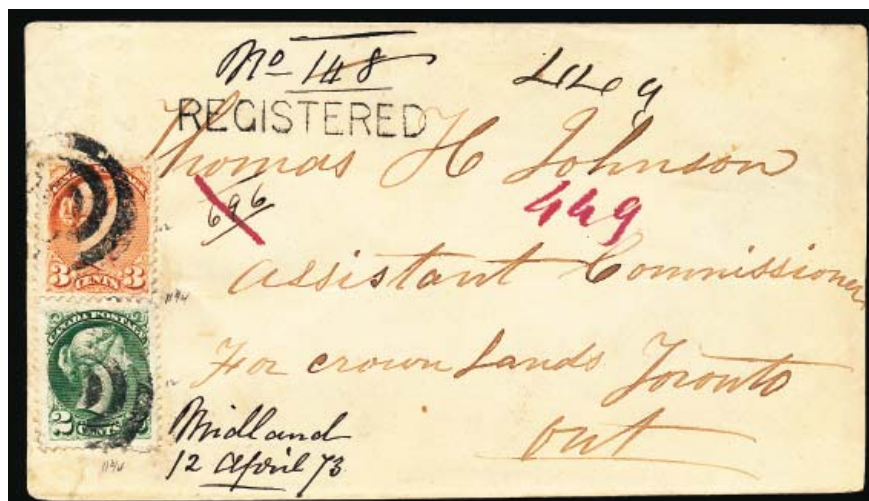 No 148
449
REGISTERED
Thomas H Johnson
696
449
Assistant Commissioner
For crown Lands Toronto
ont
Midland
12 April 73
3 CENTS 3
CANADA POSTAGE
2 CENTS
12
11¾
12
11¾